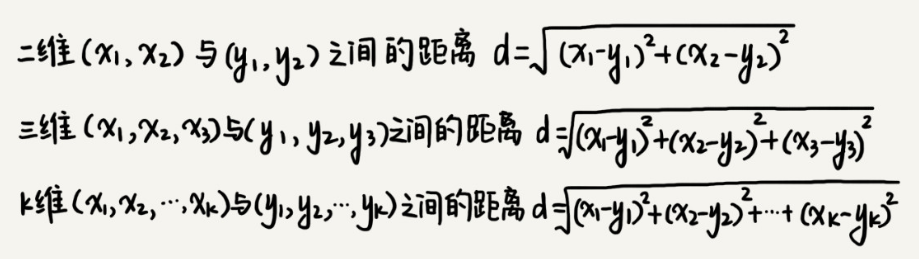 二维(x₁,x₂)与(y₁,y₂)之间的距离 d=√((x₁-y₁)²+(x₂-y₂)²)
三维(x₁,x₂,x₃)与(y₁,y₂,y₃)之间的距离 d=√((x₁-y₁)²+(x₂-y₂)²+(x₃-y₃)²)
K维(x₁,x₂,⋯,xₖ)与(y₁,y₂,⋯,yₖ)之间的距离 d=√((x₁-y₁)²+(x₂-y₂)²+⋯+(xₖ-yₖ)²)